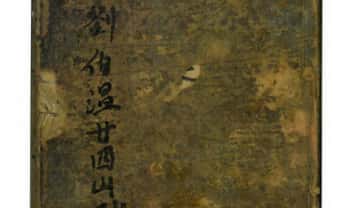 劉伯温廿四山